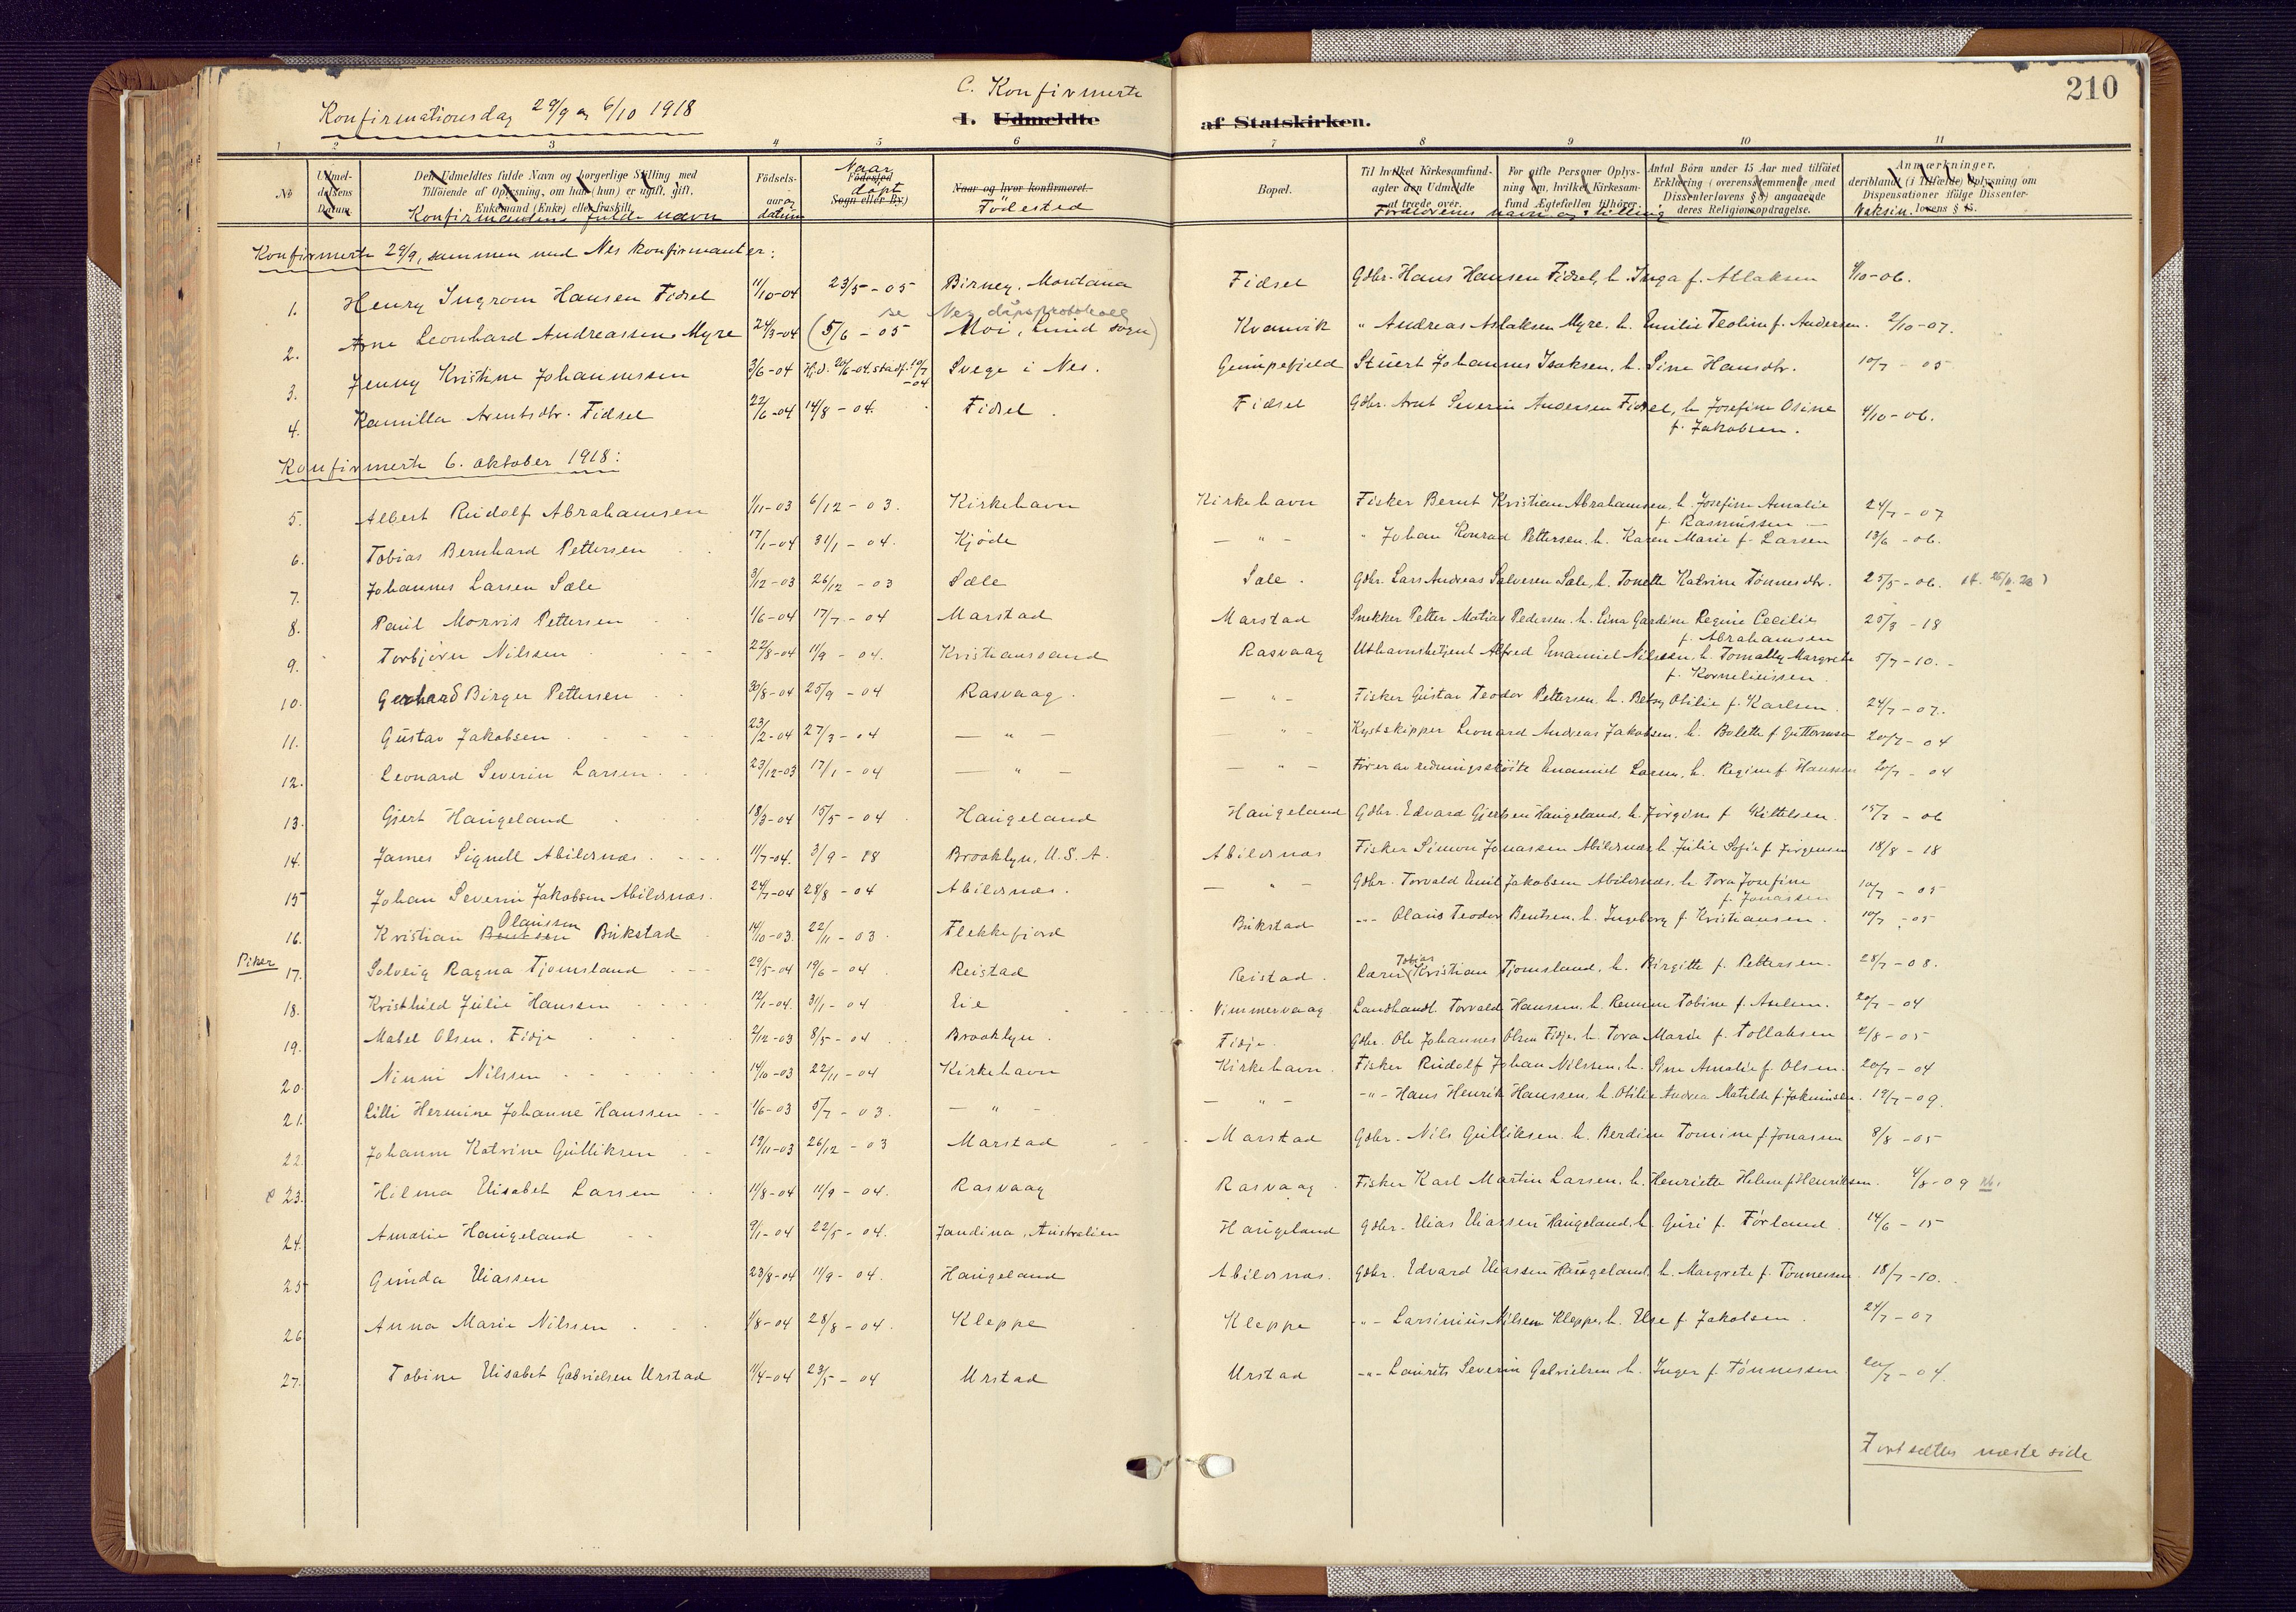 210
Konfirmationsdag 29/9 og 6/10 1918
C. Konfirmerte
I. Udmeldte af Statskirken.
1 2 3 4 5 6 7 8 9 10 11
No
Udmel-
delsens
Datum.
Den Udmeldtes fulde Navn og borgerlige Stilling med
Tilföiende af Oplysning, om han (hun) er ugift, gift,
Enkemand (Enke) eller fraskilt.
Konfirmandens fulde navn
Födsels-
aar og
datum
Naar
Födested
döpt
Sogn eller By)
Naar og hvor konfirmeret.
Födested
Bopæl.
Til hvilket Kirkesamfund-
agter den Udmeldte
at træde over.
For gifte Personer Oplys-
ning om, hvilket Kirkesam-
fund Ægtefællen tilhører.
Antal Börn under 15 Aar med tilföiet
Erklæring (overensstemmende med
Dissenterlovens § 8) angaaende
deres Religionsopdragelse.
Forældrenes navn og stilling
Anmærkninger,
deriblandt (i Tilfælde) Oplysning om
Dispensationer ifölge Dissenter-
lovens § 15.
Vaksin.
Konfirmerte 29/9, sammen med Nes konfirmanter:
1. Henry Ingrom Hansen Fidsel 11/10-04 23/5-05 Birney, Montana Fidsel Gdbr. Hans Hansen Fidsel, h. Inga f. Atlaksen 4/10-06.
se Nes dåpsprotokoll
2. Arne Leonhard Andreassen Myre 24/3-04 (5/6-05 Moi, Lund sogn) Kvanvik " Andreas Aslaksen Myre, h. Emilie Teoline f. Andersen. 2/10-07.
3. Jenny Kristine Johannessen 3/6-04 H.d. 20/6-04. stadf. 10/7-04 Svege i Nes. Gumpefjeld Stuert Johannes Isaksen, h. Sine Hansdtr. 10/7-05
4. Kamilla Arentsdtr. Fidsel 22/6-04 14/8-04. Fidsel. Fidsel Gdbr. Arnt Severin Andersen Fidsel, h. Josefine Osine
f. Jakobsen. 4/10-06.
Konfirmerte 6. oktober 1918:
5. Albert Rudolf Abrahamsen 1/11-03 6/12-03. Kirkehavn Kirkehavn Fisker Bernt Kristian Abrahamsen, h. Josefine Amalie
f. Rasmussen 24/7-07
6. Tobias Bernhard Pettersen 17/1-04 31/1-04. Kjöde - " - " Johan Konrad Pettersen, h. Karen Marie f. Larsen 13/6-06.
7. Johannes Larsen Sæle 3/12-03 26/12-03 Sæle Sæle. Gdbr. Lars Andreas Salvesen Sæle, h. Tonette Katrine Tönnesdtr. 25/5-06.
8. Paul Morvis Pettersen 1/6-04 17/7-04 Marstad Marstad Snekker Petter Matias Pedersen, h. Lina Gardine Regine Cecilie
f. Abrahamsen 25/3-18
9. Torbjörn Nilssen 22/8-04 11/9-04. Kristianssand Rasvaag Uthavnsbetjent Alfred Emanuel Nilssen, h. Tomally Margrete
f. Korneliussen 5/7-10.
10. Gerhard Birger Pettersen 30/8-04 25/9-04 Rasvaag. - " - Fisker Gustav Teodor Pettersen, h. Betsy Otilie f. Karlsen. 24/7-07.
11. Gustav Jakobsen 23/2-04 27/3-04 - " - - " - Kystskipper Leonard Andreas Jakobsen. h. Bolette f. Guttormsen 20/7-04
12. Leonard Severin Larsen 23/12-03 17/1-04 - " - - " - Förer av redningsskøite Emanuel Larsen, h. Regine f. Hanssen 20/7-04
13. Gjert Haugeland 18/3-04 15/5-04 Haugeland Haugeland Gdbr. Edvard Gjertsen Haugeland, h. Jörgine f. Kittelsen. 15/7-06
14. James Signell Abilsnæs. 11/7-04. 3/9-18 Brooklyn, U.S.A. Abilsnæs Fisker Simon Jonassen Abilsnæs, h. Julie Sofie f. Jörgensen 18/8-18
15 Johan Severin Jakobsen Abilsnæs. 24/7-04 28/8-04 Abilsnæs. - " - Gdbr. Torvald Emil Jakobsen Abilsnæs. h. Tora Josefine
f. Jonassen 10/7-05
16. Kristian Bentsen Olaussen Bukstad 14/10-03. 22/11-03. Flekkefjord Bukstad -"- Olaus Teodor Bentsen, h. Ingeborg f. Kristiansen. 10/7-05
Piker
17. Solveig Ragna Tjomsland 29/5-04 19/6-04 Reistad Reistad. Lærer Tobias Kristian Tjomsland, h. Birgitte f. Pettersen. 28/7-08.
18. Kristhild Julie Hansen 12/1-04. 31/1-04 Eie Vimmervaag Landhandl. Torvald Hanssen, h. Remine Tobine f. Axelsen. 20/7-04
19. Mabel Olsen. Fidje 2/12-03 8/5-04 Brooklyn. Fidje. Gdbr. Ole Johannes Olsen Fidje, h. Tora Marie f. Tollaksen 2/8-05
20. Ninni Nilssen 14/10-03 22/11-04 Kirkehavn Kirkehavn. Fisker Rudolf Johan Nilssen, h. Sine Amalie f. Olsen. 20/7-04
21. Lilli Hermine Johanne Hanssen 1/6-03 5/7-03. - " - - " - -"- Hans Henrik Hanssen, h. Otilie Andrea Matilde f. Jokumsen. 19/7-09.
22. Johanne Katrine Gulliksen 19/11-03 26/12-03 Marstad Marstad Gdbr. Nils Gulliksen. h. Berdine Tomine f. Jonassen 8/8-05
23. Hilma Elisabet Larsen 11/8-04 11/9-04. Rasvaag Rasvaag Fisker Karl Martin Larsen, h. Henriette Helene f. Henriksen. 4/8-09
24. Amalie Haugeland 9/1-04 22/5-04. Jandina, Australien Haugeland Gdbr. Elias Eliassen Haugeland, h. Guri f. Förland. 14/6-15
25 Gunda Eliassen 23/8-04 11/9-04. Haugeland Abilsnæs. Gdbr. Edvard Eliassen Haugeland, h. Margrete f. Tönnessen 18/7-10.
26 Anna Marie Nilssen 1/8-04 28/8-04. Kleppe Kleppe -"- Larsinius Nilssen Kleppe, h. Else f. Jakobsen. 24/7-07
27. Tobine Elisabet Gabrielsen Urstad 11/4-04 23/5-04 Urstad Urstad -"- Laurits Severin Gabrielsen h. Inger f. Tönnessen 20/7-04.
Fortsettes næste side